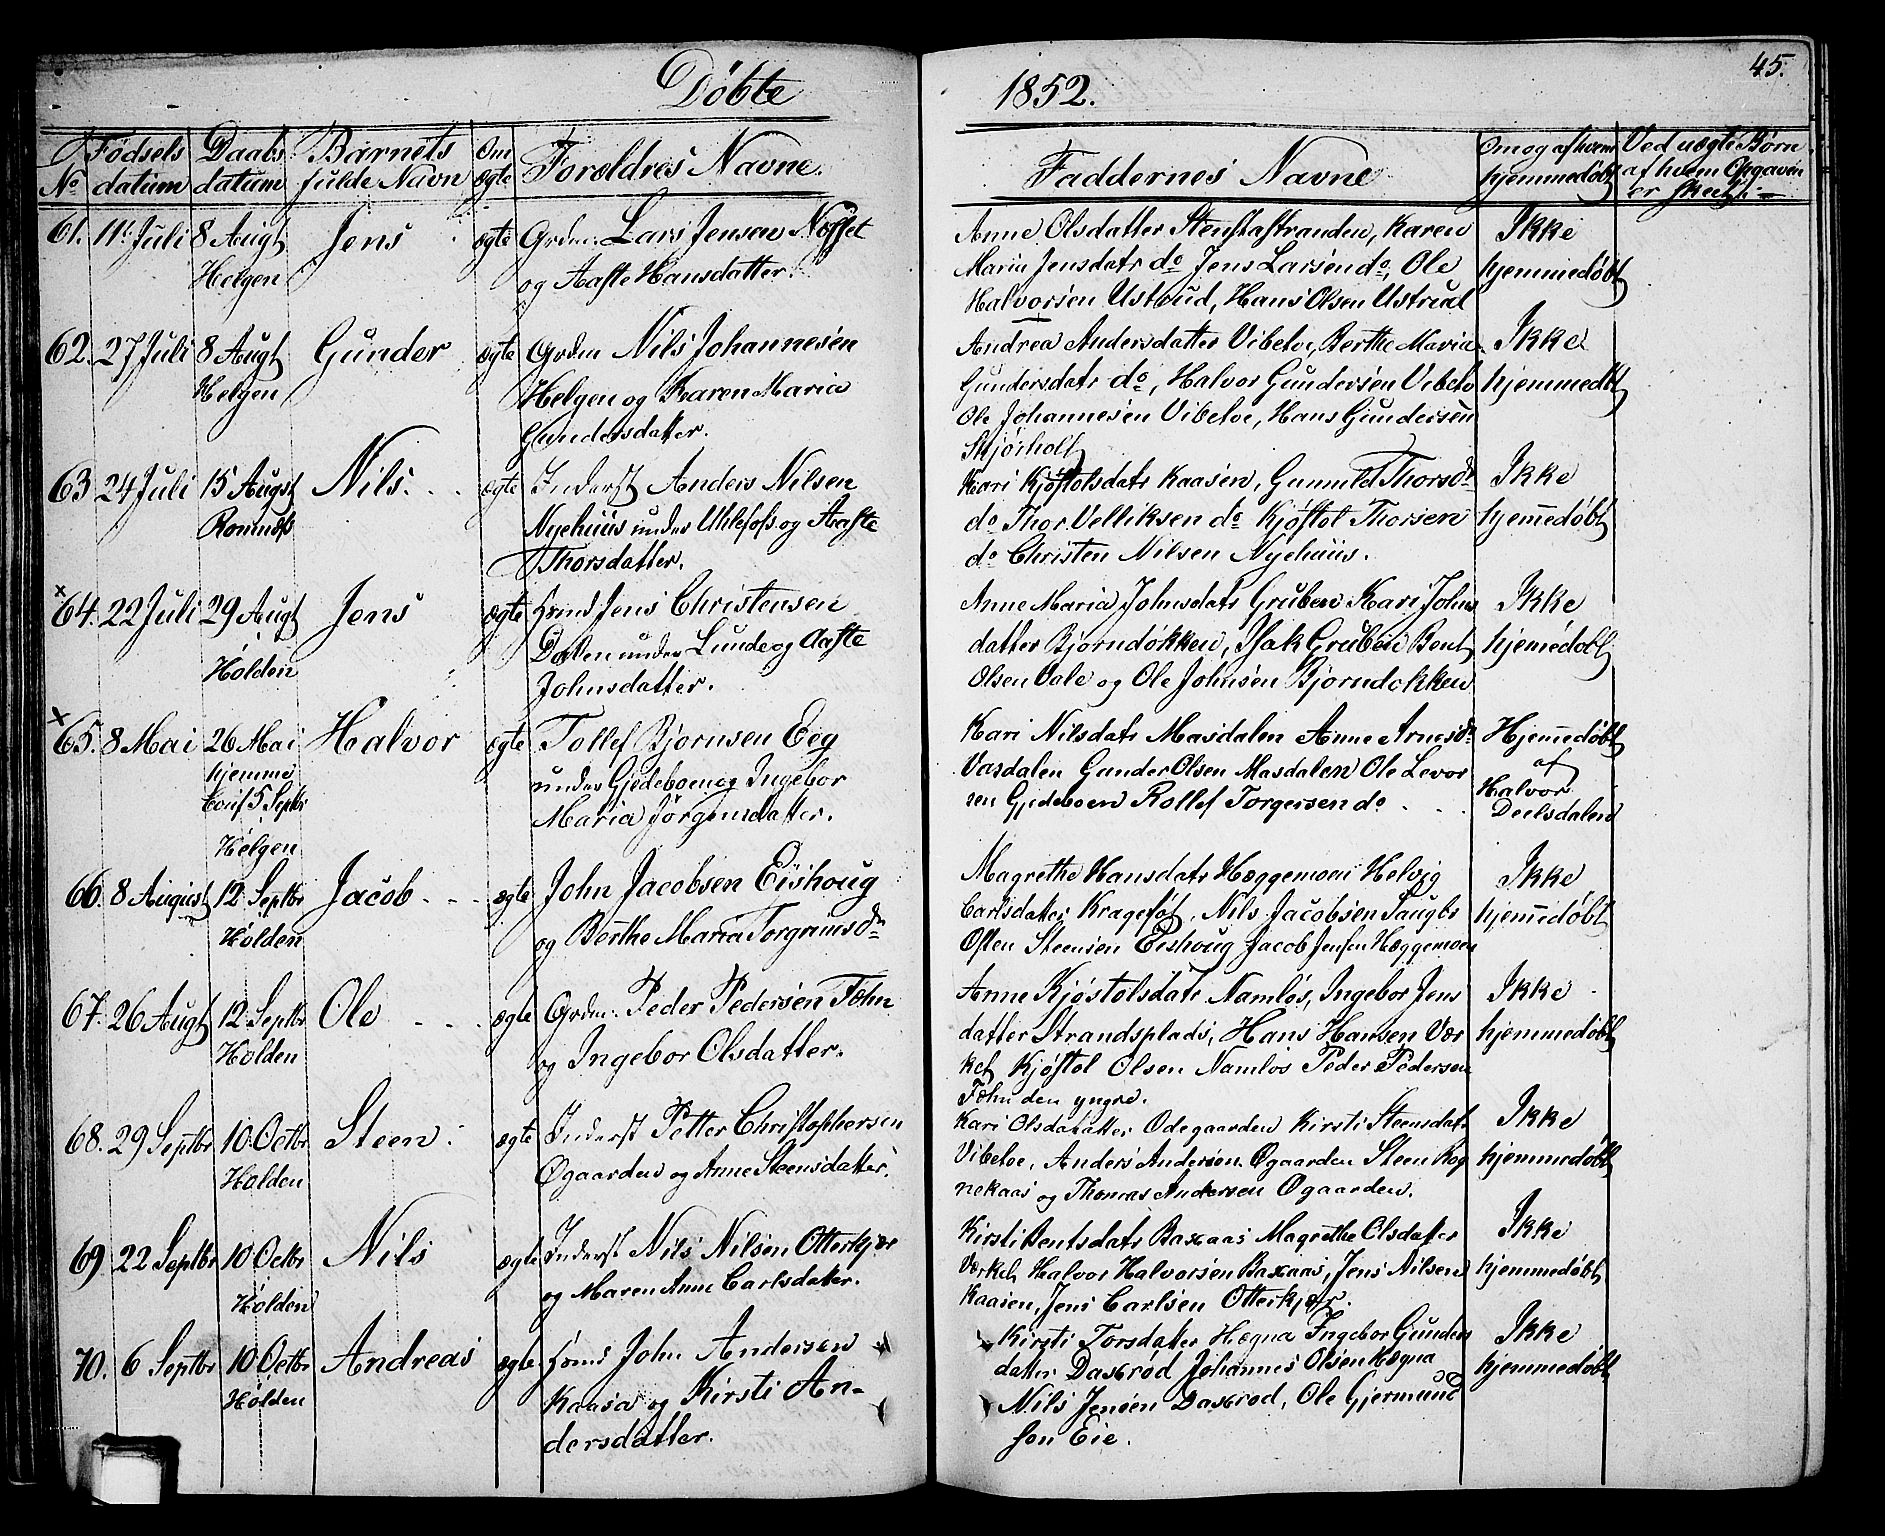 Døbte
1852.
45.
No
Fødsels datum
Daabs datum
Barnets fulde Navn
Om ægte
Forældres Navne.
Faddernes Navne
Om og af hvem hjemmedøbt
Ved uægte Børn af hvem Opgaven er skeet.
61. 11t Juli 8 Augt Jens ægte Grdm. Lars Jensen Næsset
Helgen og Aaste Hansdatter.
Anne Olsdatter Stenstastranden, Karen
Maria Jensdatr do Jens Larsen do, Ole
Halvorsen Ustrud, Hans Olsen Ustrud
Ikke
hjemmedøbt
62. 27 Juli 8 Augt Gunder ægte Grdm Nils Johannesen
Helgen Helgen og Karen Maria
Gundersdatter.
Andrea Andersdatter Vibeto, Berthe Maria
Gundersdatr do, Halvor Gundersen Vibeto
Ole Johannesen Vibetoe, Hans Gundersen
Skjørholt
Ikke
hjemmedøbt
63 24 Juli 15 Augst Nils. ægte Inderst Anders Nilsen
Romnæs Nyehuus under Uhlefos og Aaste
Thorsdatter.
Kari Kjøstolsdatr Kaasen, Gunnild Thorsdr
do Thor Velliksen do Kjøstol Thorsen
do Christen Nilsen Nyehuus.
Ikke
hjemedøbt
x 64. 22 Juli 29 Augt Jens ægte Huusmd Jens Christensen
Holden Dalen under Lunde og Aaste
Johnsdatter.
Anne Maria Johnsdatr Gruben Kari Johns
datter Bjorndokken, Isak Gruben Bent
Olsen Vale og Ole Johnsen Bjorndokken
Ikke
hjemedøbt
x 65. 8 Mai 26 Mai Halvor ægte Tollef Bjornsen Eeg
hjemme under Gjedeboen og Ingebor
5 Septbr Maria Jørgensdatter.
Helgen
Kari Nilsdatr Masdalen Anne Arnesdr
Vasdalen Gunder Olsen Masdalen Ole Levor
sen Gjedeboen Rollef Torgersen do
Hjemedøbt
af
Halvor
Deelsdalen
66. 8 August 12 Septbr Jacob ægte John Jacobsen Eishoug
Holden og Berthe Maria Torgrimsdr
Magrethe Hansdatr Hæggemoen Helvig
Carlsdatter Kragefot, Nils Jacobsen Taugbo
Osten Steensen Eishoug Jacob Jensen Hæggemoen
Ikke
hjemedøbt
67. 26 Augt 12 Septbr Ole ægte Grdm. Peder Pedersen Fæhn
Holden og Ingebor Olsdatter.
Anne Kjøstolsdatr Namløs, Ingebor Jens
datter Strandsplads, Hans Hansen Vær
ket Kjøstol Olsen Namløs Peder Pedersen
Fæhn den yngre.
Ikke
hjemmedøbt
68. 29 Septbr 10 Octbr Steen. ægte Inderst Petter Christophersen
Holden Øgaarden og Anne Steensdatter.
Kari Olsdatatter Odegaarden Kirsti Steensdatr
Vibetoe, Anders Andersen Øgaarden Steen Rog
nekaas og Thomas Andersen Øgaarden.
Ikke
hjemmedøbt
69 22 Septbr 10 Octbr Nils ægte Inderst Nils Nilsen Otterkjær
Holden og Maren Anne Carlsdatter.
Kirsti Bentsdatr Baxaas Magrethe Olsdatter
Værket Halvor Halvorsen Baxaas, Jens Nilsen
Kaasen, Jens Carlsen Otterkjær.
Ikke
hjemmedøbt
70. 6 Septbr 10 Octbr Andreas ægte Huusmd John Andersen
Holden Kaasa og Kirsti An-
dersdatter.
Kirsti Torsdatter Hægna Ingebor Gunders
datter Daxrød Johannes Olsen Hægna
Nils Jensen Daxrod, Ole Gjermund
sen Eie.
Ikke
hjemmedøbt